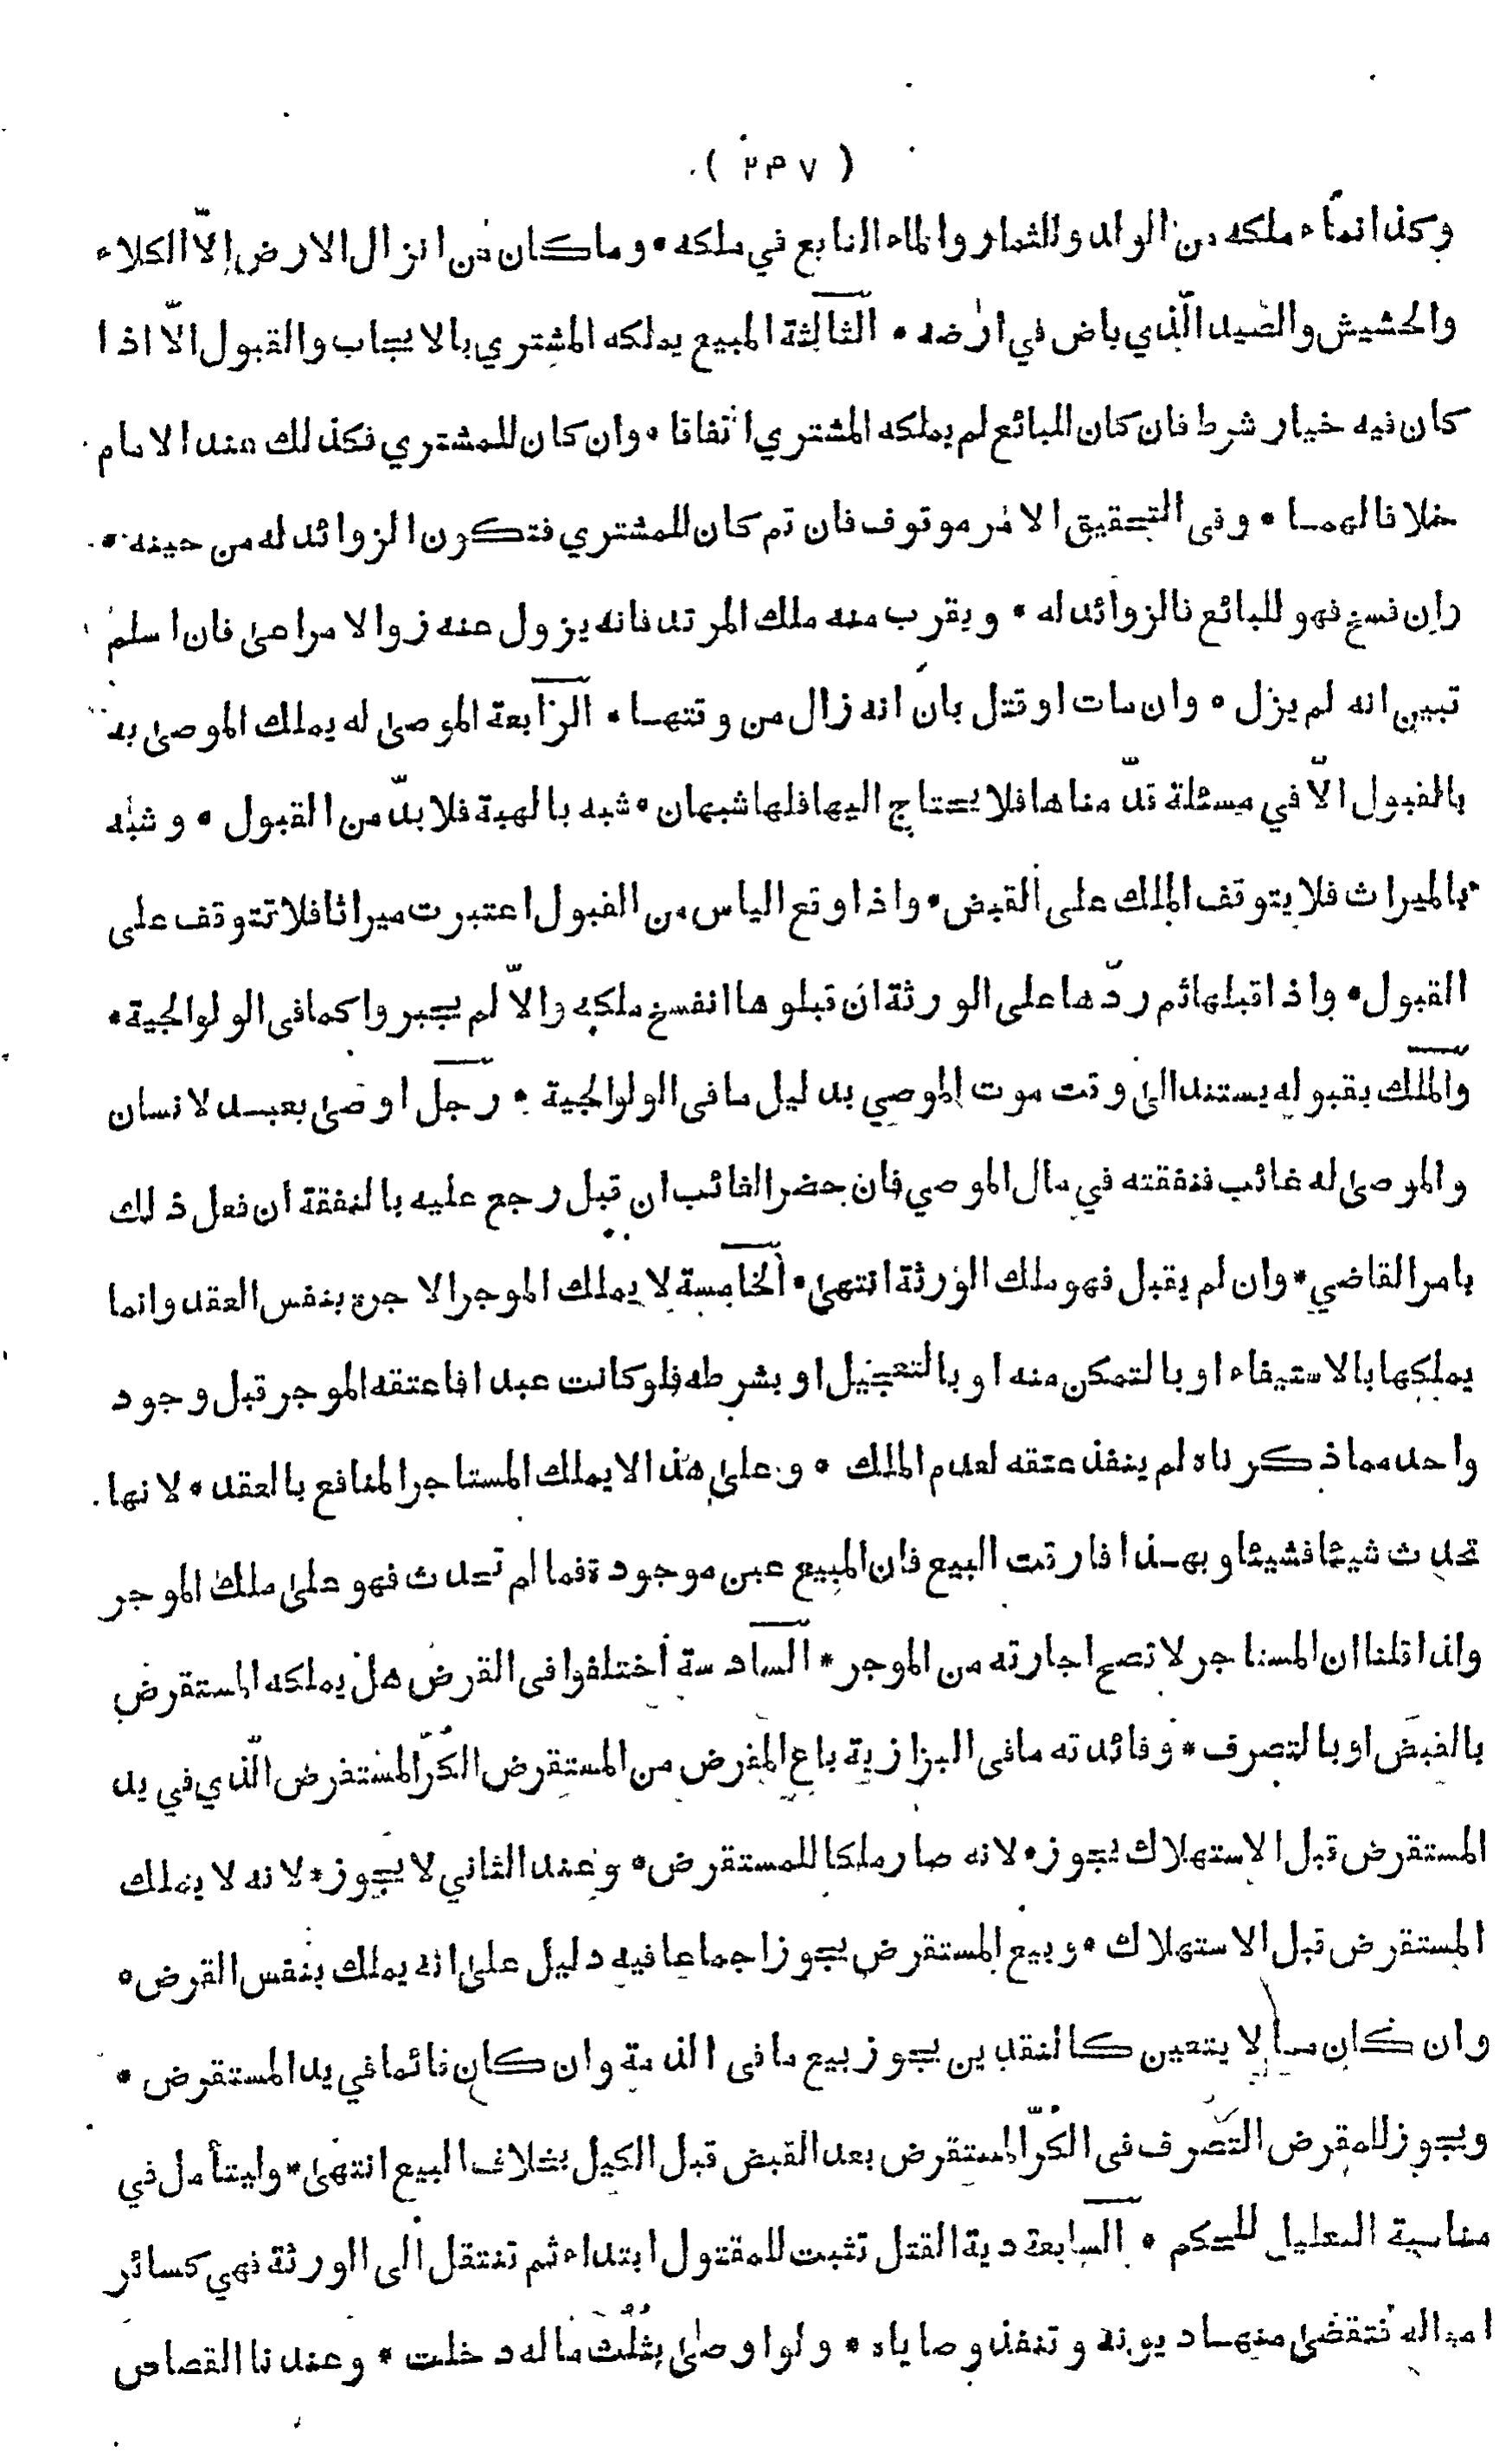 ( ٢٤٧ )
وكذا نماء ملكه من الولد والثمار والماء النابع في ملكه * وما كان من انزال الارض الّا الكلاء
والحشيش والصيد الّذي باض في ارضه * الثالثة المبيع يملكه المشتري بالايجاب والقبول الّا اذا
كان فيه خيار شرط فان كان للبائع لم يملكه المشتري اتفاقا * وان كان للمشتري فكذلك عند الامام
خلافا لهما * وفى التحقيق الامر موقوف فان تم كان للمشتري فتكون الزوائد له من حينه *
وان فسخ فهو للبائع فالزوائد له * ويقرب منه ملك المرتد فانه يزول عنه زوالا مراعى فان اسلم
تبين انه لم يزل * وان مات او قتل بان انه زال من وقتها * الرابعة الموصى له يملك الموصى به
بالقبول الّا في مسئلة قدّ مناها فلا يحتاج اليها فلها شبهان * شبه بالهبة فلا بدّ من القبول * وشبه
بالميراث فلا يتوقف الملك على القبض * واذا وقع الياس من القبول اعتبرت ميراثا فلا تتوقف على
القبول * واذا قبلها ثم ردّها على الورثة ان قبلوها انفسخ ملكه والّا لم يجبروا كما فى الولوالجية *
والملك بقبوله يستند الى وقت موت الموصي بدليل ما فى الولوالجية * رجل اوصى بعبد لانسان
والموصى له غائب فنفقته في مال الموصي فان حضر الغائب ان قبل رجع عليه بالنفقة ان فعل ذلك
بامر القاضي * وان لم يقبل فهو ملك الورثة انتهى * الخامسة لا يملك الموجر الاجرة بنفس العقد وانما
يملكها بالاستيفاء او بالتمكن منه او بالتعجيل او بشرطه فلو كانت عبدا فاعتقه الموجر قبل وجود
واحد مما ذكرناه لم ينفذ عتقه لعدم الملك * وعلى هذا لا يملك المستاجر المنافع بالعقد * لانها
تحدث شيئا فشيئا وبهذا فارقت البيع فان المبيع عين موجودة فما لم تحدث فهو على ملك الموجر
واذا قلنا ان المستاجر لا تصح اجارته من الموجر * السادسة اختلفوا فى القرض هل يملكه المستقرض
بالقبض او بالتصرف * وفائدته ما فى البزازية باع المقرض من المستقرض الكُرّ المستقرض الّذي في يد
المستقرض قبل الاستهلاك يجوز * لانه صار ملكا للمستقرض * وعند الثاني لا يجوز * لانه لا يملك
المستقرض قبل الاستهلاك * وبيع المستقرض يجوز اجماعا فيه دليل على انه يملك بنفس القرض *
وان كان مما لا يتعين كالنقدين يجوز بيع ما فى الذمة وان كان قائما في يد المستقرض *
ويجوز للمقرض التصرف فى الكُرّ المستقرض بعد القبض قبل الكيل بخلاف البيع انتهى * وليتأمل في
مناسبة التعليل للحكم * السابعة دية القتل تثبت للمقتول ابتداء ثم تنتقل الى الورثة فهي كسائر
امواله فتقضى منها ديونه وتنفذ وصاياه * ولو اوصى بثُلُث ماله دخلت * وعندنا القصاص